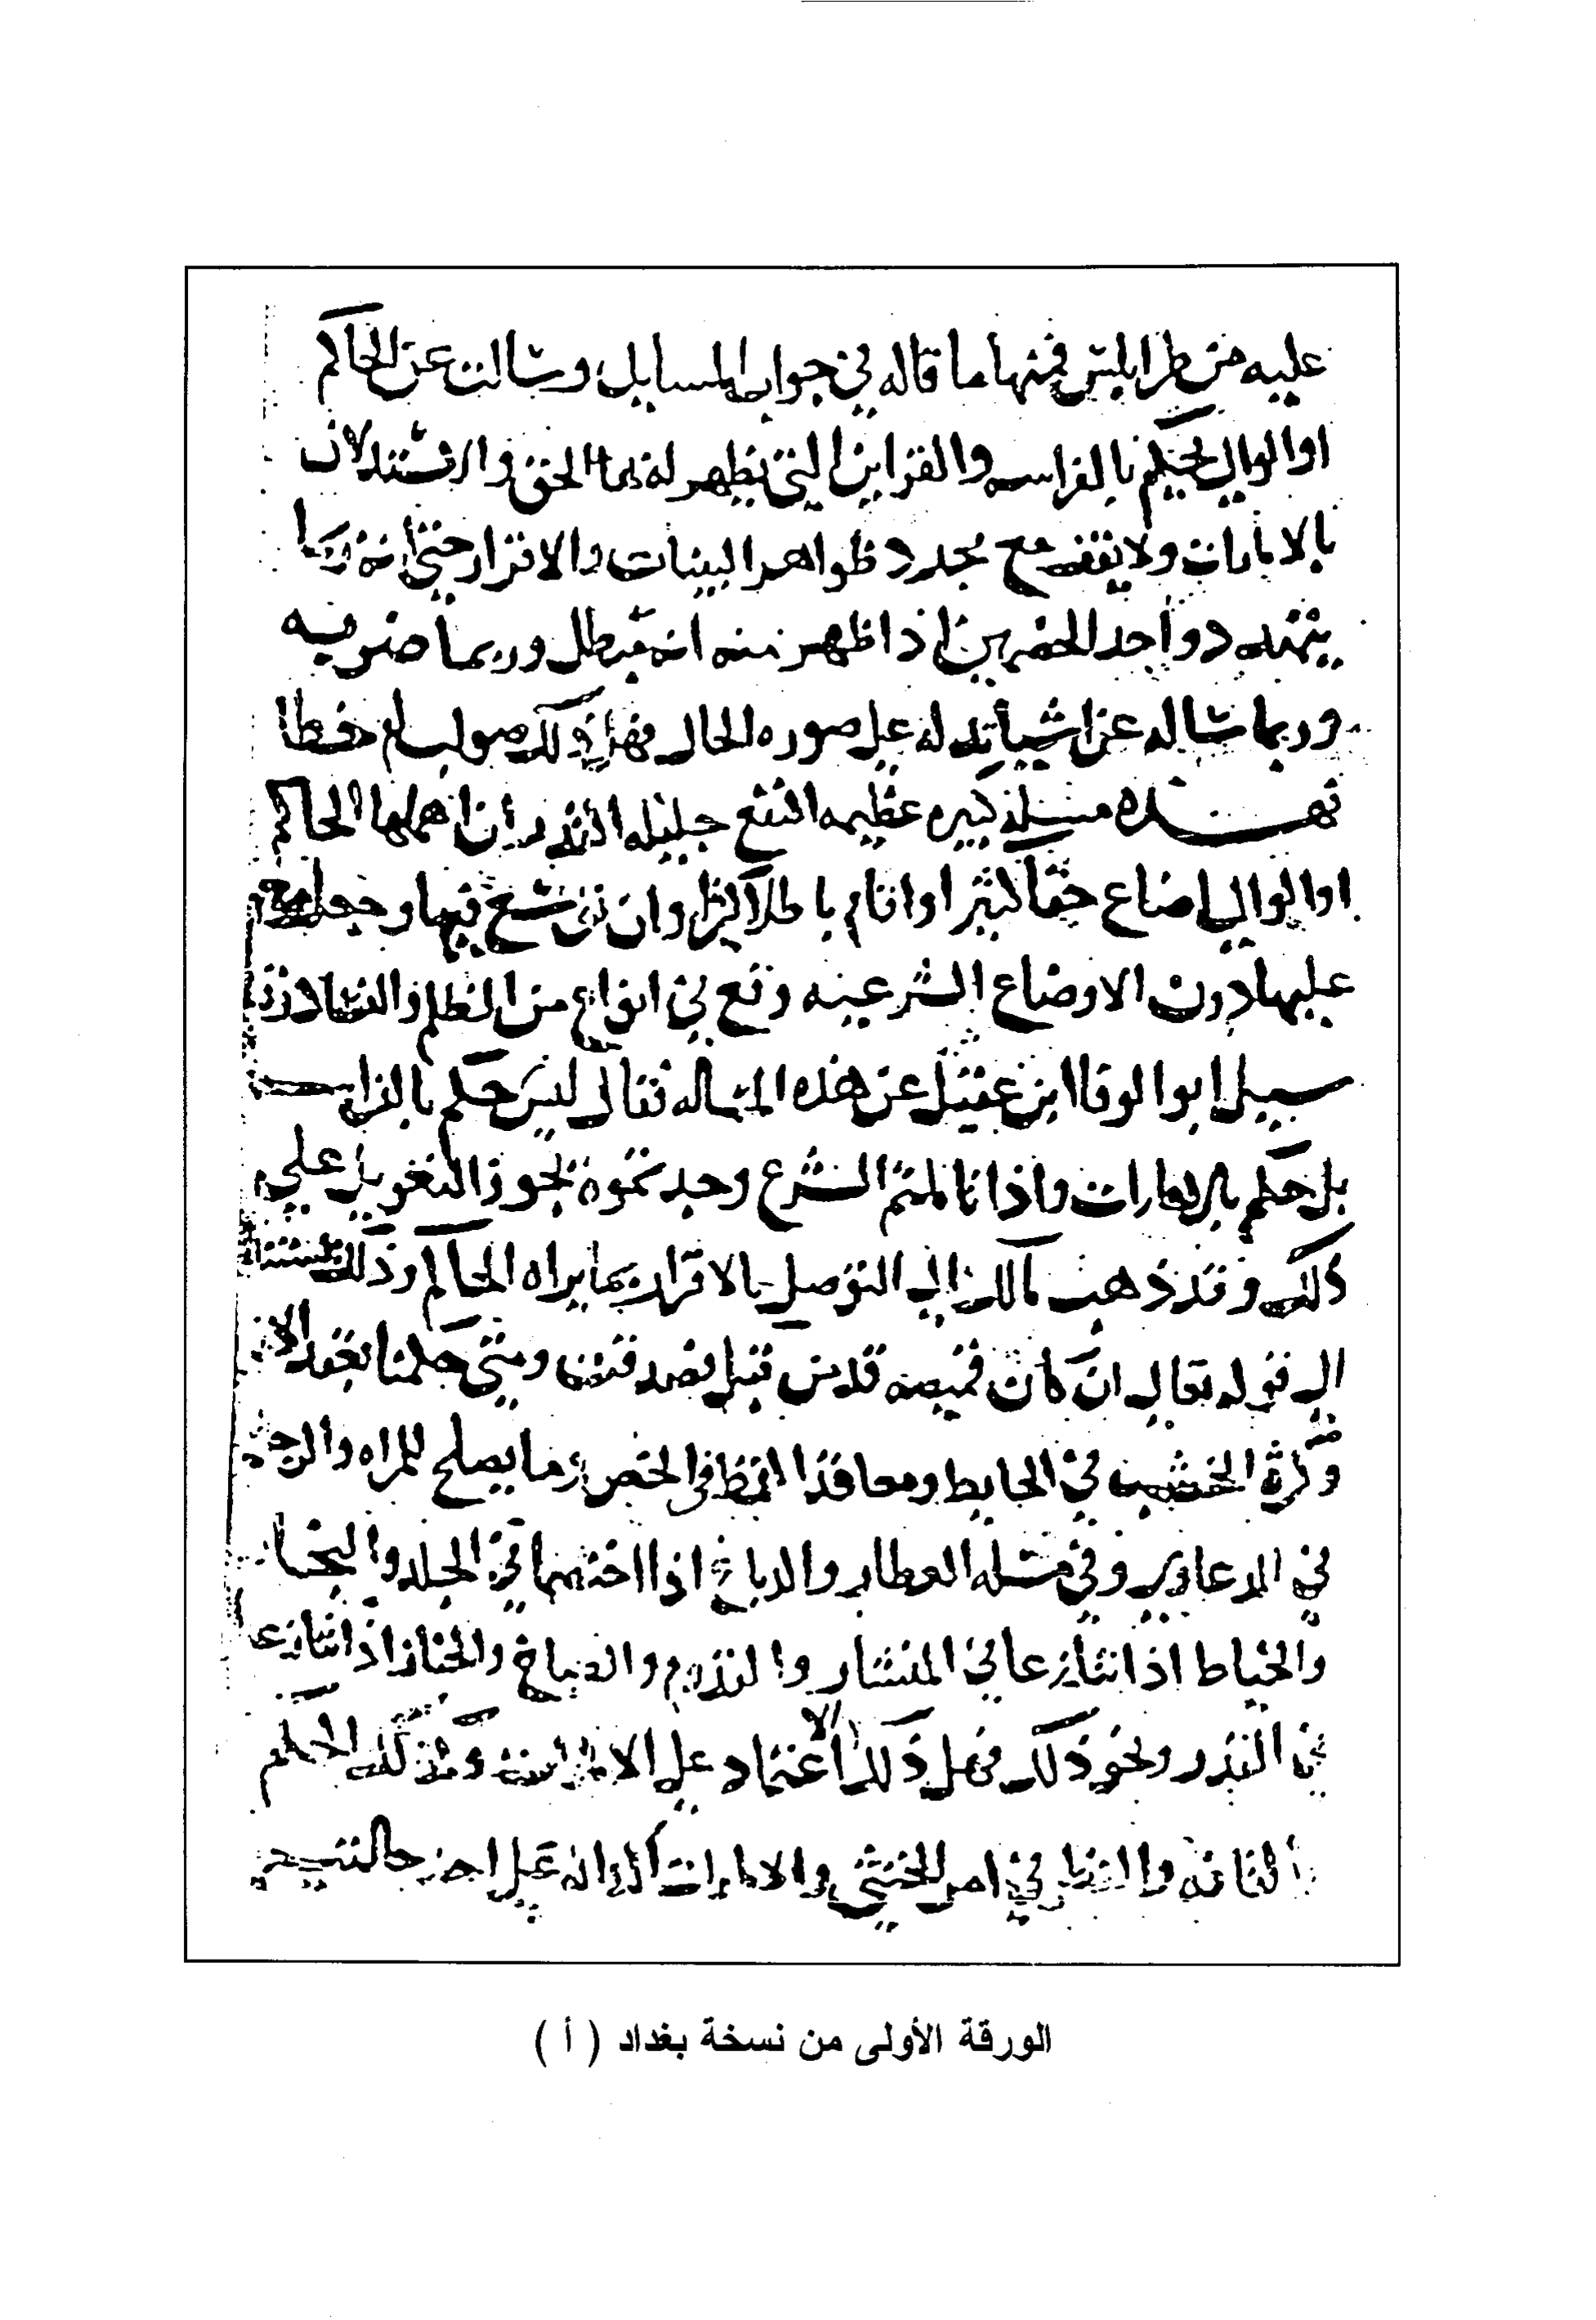 عليه من طرابلس فمنها ما قاله في جواب المسايل وسالت عن الحاكم
او الوالي يحكم بالفراسه والقراين التي يظهر له بها الحق والاستدلال
بالامارات ولا يقف مع مجرد ظواهر البينات والاقرار حتى انه ربما
يتهدد احد الخصمين اذا ظهر منه انه مبطل وربما ضربه
وربما ساله عن اشيا تدله على صوره الحال فهل ذلك صواب ام خطا
فهذه مسلة كبيره عظيمه النفع جليله القدر ان اهملها الحاكم
او الوالي اضاع حقا كثيرا واقام باطلا كثيرا وان توسع فيها وجعل معوله
عليها دون الاوضاع الشرعيه وقع في انواع من الظلم والفساد وقد
سيل ابو الوفا ابن عقيل عن هذه المساله فقال ليس حكم بالفراسه
بل حكم بالامارات واذا تاملتم الشرع وجدتموه يجوز التعويل على
ذلك وقد ذهب مالك الى التوصل بالاقرار بما يراه الحاكم وذلك مستند
الى قوله تعالى ان كان قميصه قد من قبل فصدقت ومتى حكمنا بعقد الا
وكثرة الخشب في الحايط ومعاقد القمط في الخص وما يصلح للمراه والرجل
في الدعاوي وفي مسله العطار والدباغ اذا اختصما في الجلد والنجار
والخياط اذا تنازعا في المنشار والقدوم والطباخ والخباز اذا تنازعا
في القدر ونحو ذلك فهل ذلك الا اعتماد على الامارات وكذلك الحكم
بالقافه والنظر في امر الخنثى والامارات الداله على احد حالتيه
الورقة الأولى من نسخة بغداد ( أ )